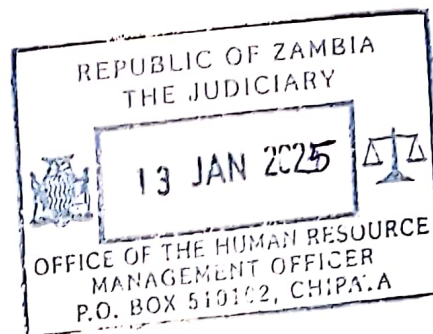 REPUBLIC OF ZAMBIA
THE JUDICIARY
13 JAN 2025
OFFICE OF THE HUMAN RESOURCE
MANAGEMENT OFFICER
P.O. BOX 510102, CHIPATA